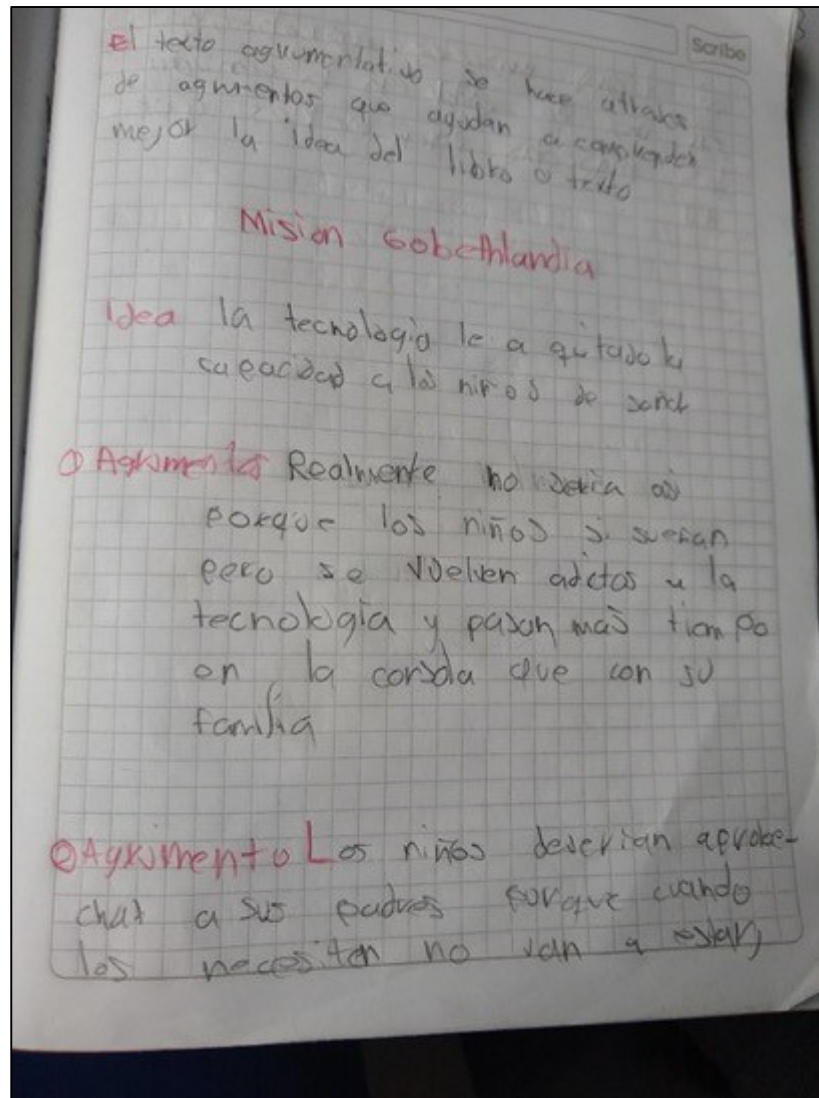 Scribe
El texto agumentativo se hace atraves
de agumentos que ayudan a comprender
mejor la idea del libro o texto
Mision Gobethlandia
Idea la tecnologia le a quitado la
capacidad a los niños de soñar
① Agumento Realmente no seria asi
porque los niños si sueñan
pero se vuelven adictos a la
tecnología y pasan mas tiempo
en la consola que con su
familia
② Agumento Los niños deverian aprobe-
char a sus padres porque cuando
los necesiten no van a estar,